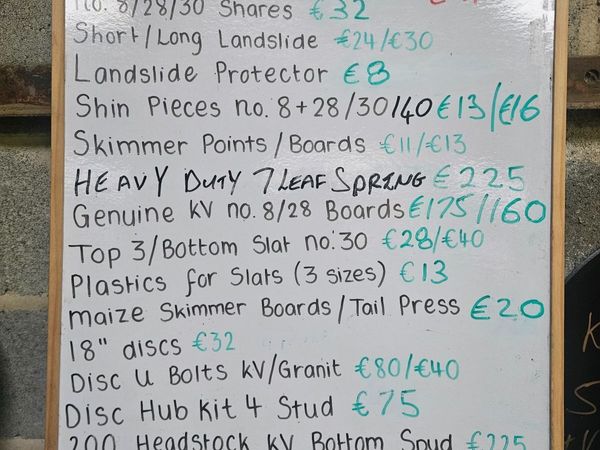 no. 8/28/30 Shares €32
Short/Long Landslide €24/€30
Landslide Protector €8
Shin Pieces no. 8+28/30/40 €13/€16
Skimmer Points/Boards €11/€13
HEAVY DUTY 7 LEAF SPRING €225
Genuine KV no. 8/28 Boards €175/160
Top 3/Bottom Slat no. 30 €28/€40
Plastics for Slats (3 sizes) €13
maize Skimmer Boards/Tail Press €20
18" discs €32
Disc U Bolts KV/Granit €80/€40
Disc Hub Kit 4 Stud €75
200 Headstock KV Bottom Spud €225